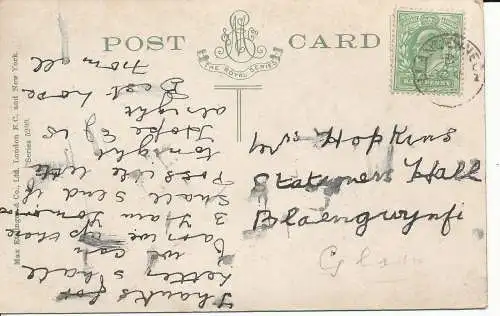 POST CARD
THE ROYAL SERIES
Max Ettlinger & Co., Ltd. London E.C. and New York.
Series 5098
Thanks for
letter shall
if we can
Cam we up there
3 Ham Tomorrow
shall send it
Possible late
tonight
Hope Ej is
alright
Best love
from all
Mrs Hopkins
Stationers Hall
Blaengwynfi
Glam